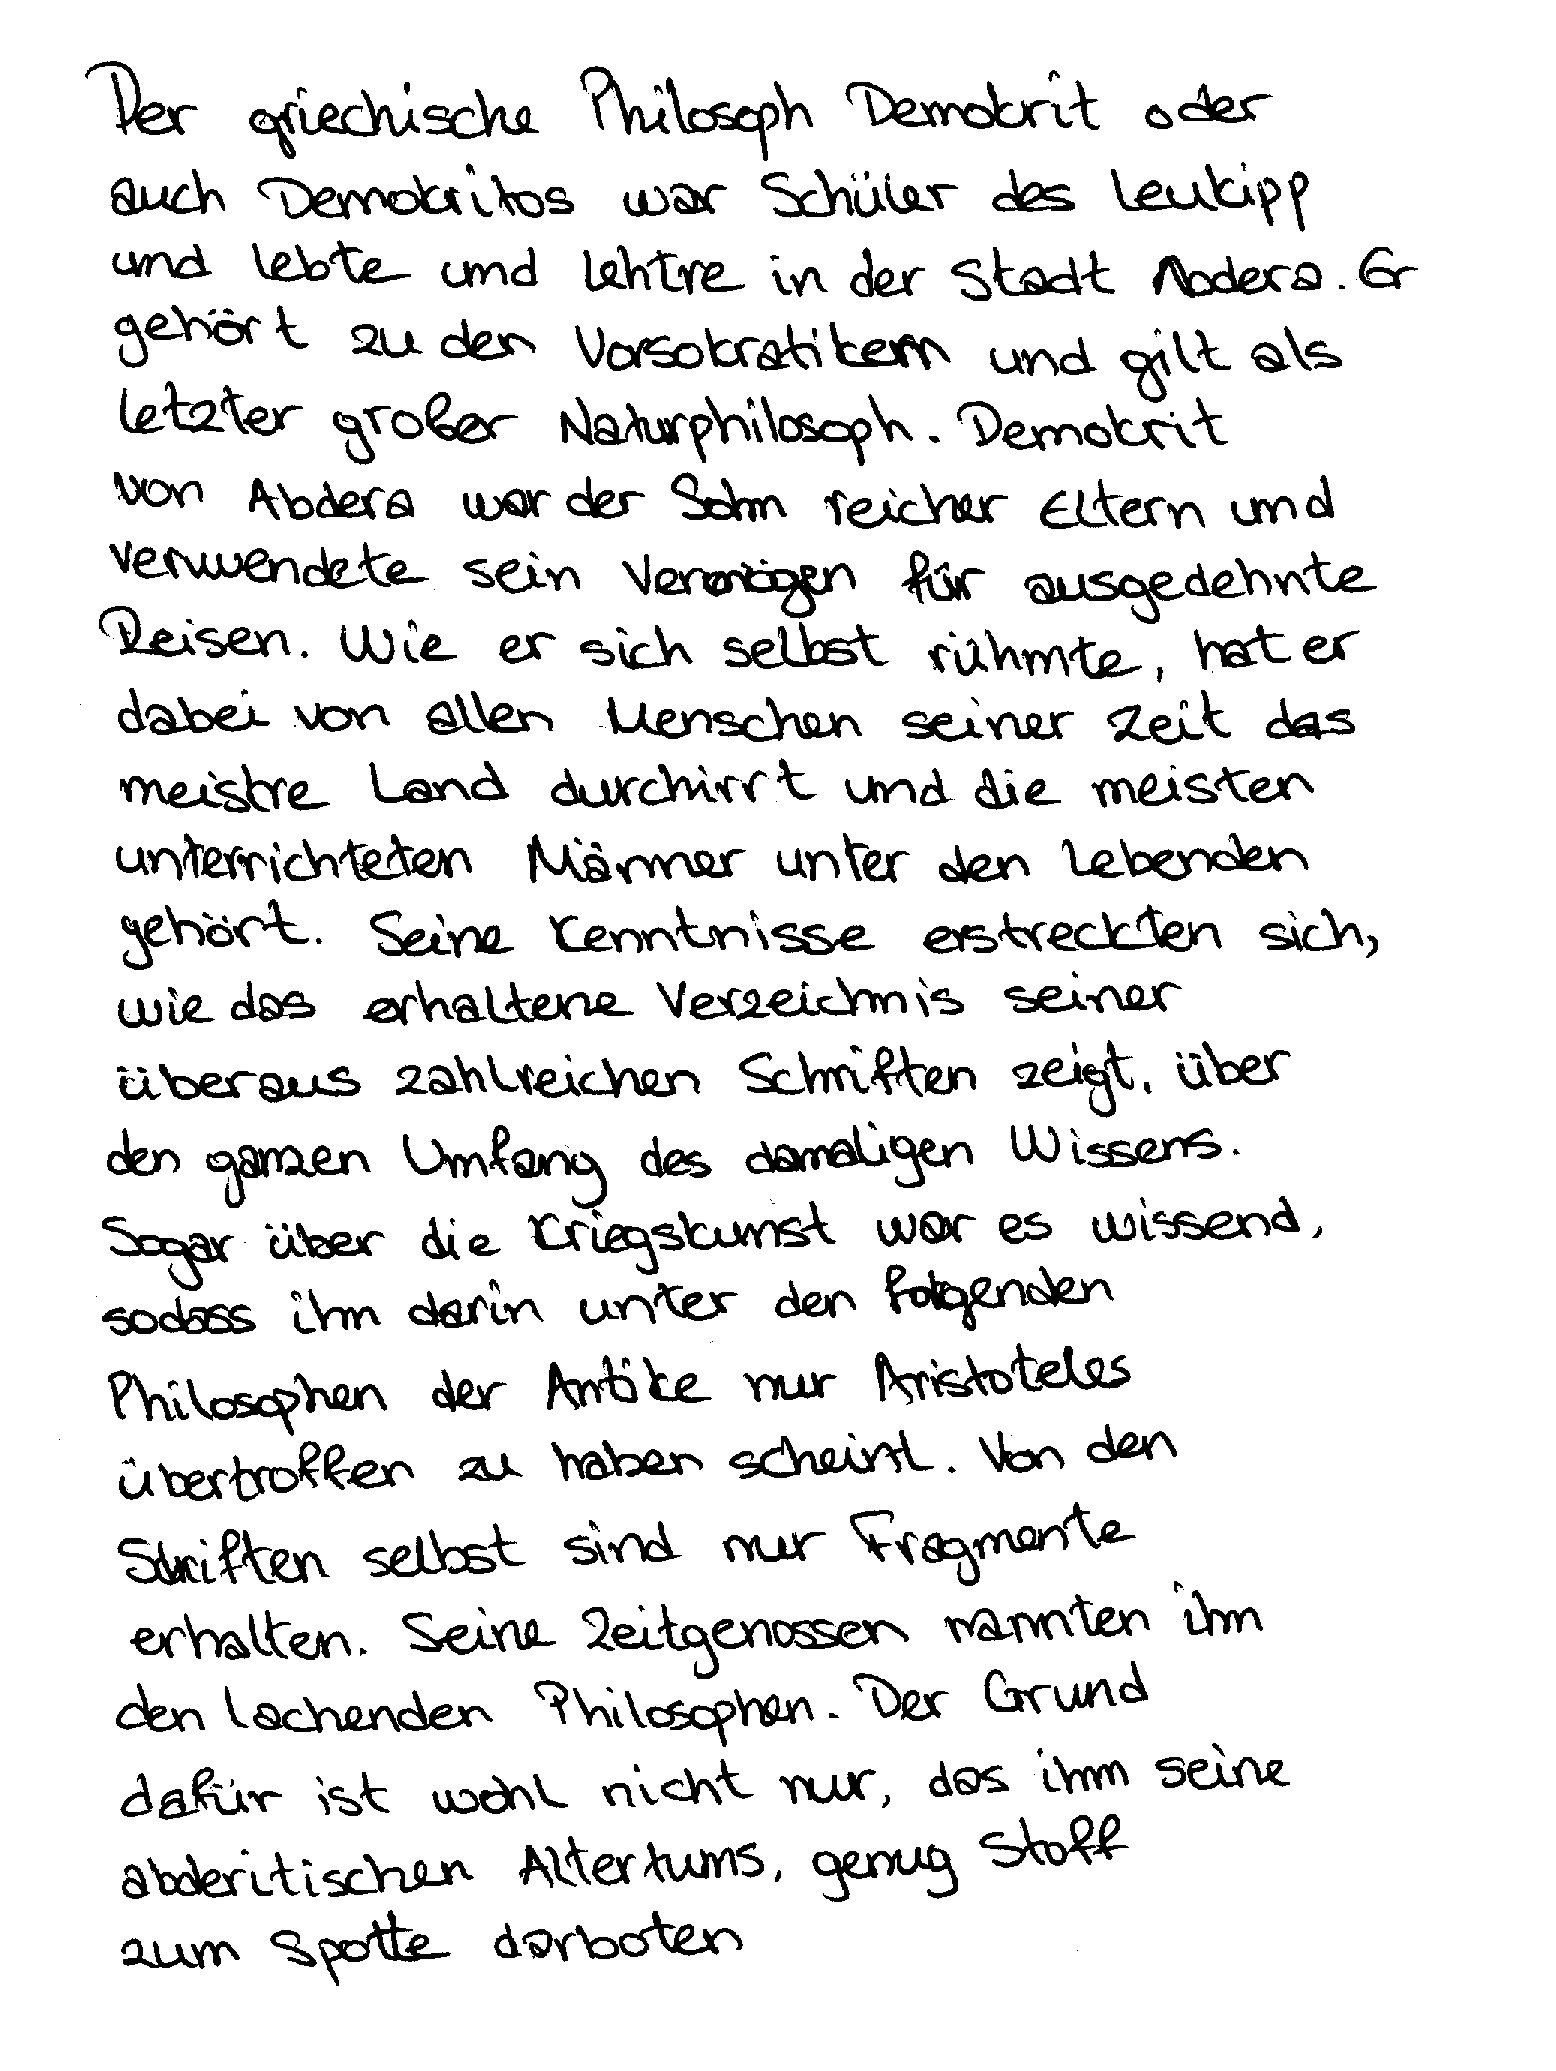 Der griechische Philosoph Demokrit oder
auch Demokritos war Schüler des Leukipp
und lebte und lehtre in der Stadt Abdera. Er
gehört zu den Vorsokratikern und gilt als
letzter großer Naturphilosoph. Demokrit
von Abdera war der Sohn reicher Eltern und
verwendete sein Vermögen für ausgedehnte
Reisen. Wie er sich selbst rühmte, hat er
dabei von allen Menschen seiner Zeit das
meistre Land durchirrt und die meisten
unterrichteten Männer unter den Lebenden
gehört. Seine Kenntnisse erstreckten sich,
wie das erhaltene Verzeichnis seiner
überaus zahlreichen Schriften zeigt, über
den ganzen Umfang des damaligen Wissens.
Sogar über die Kriegskunst war es wissend,
sodass ihm darin unter den folgenden
Philosophen der Antike nur Aristoteles
übertroffen zu haben scheint. Von den
Schriften selbst sind nur Fragmente
erhalten. Seine Zeitgenossen nannten ihn
den lachenden Philosophen. Der Grund
dafür ist wohl nicht nur, das ihm seine
abderitischen Altertums, genug Stoff
zum Spotte darboten